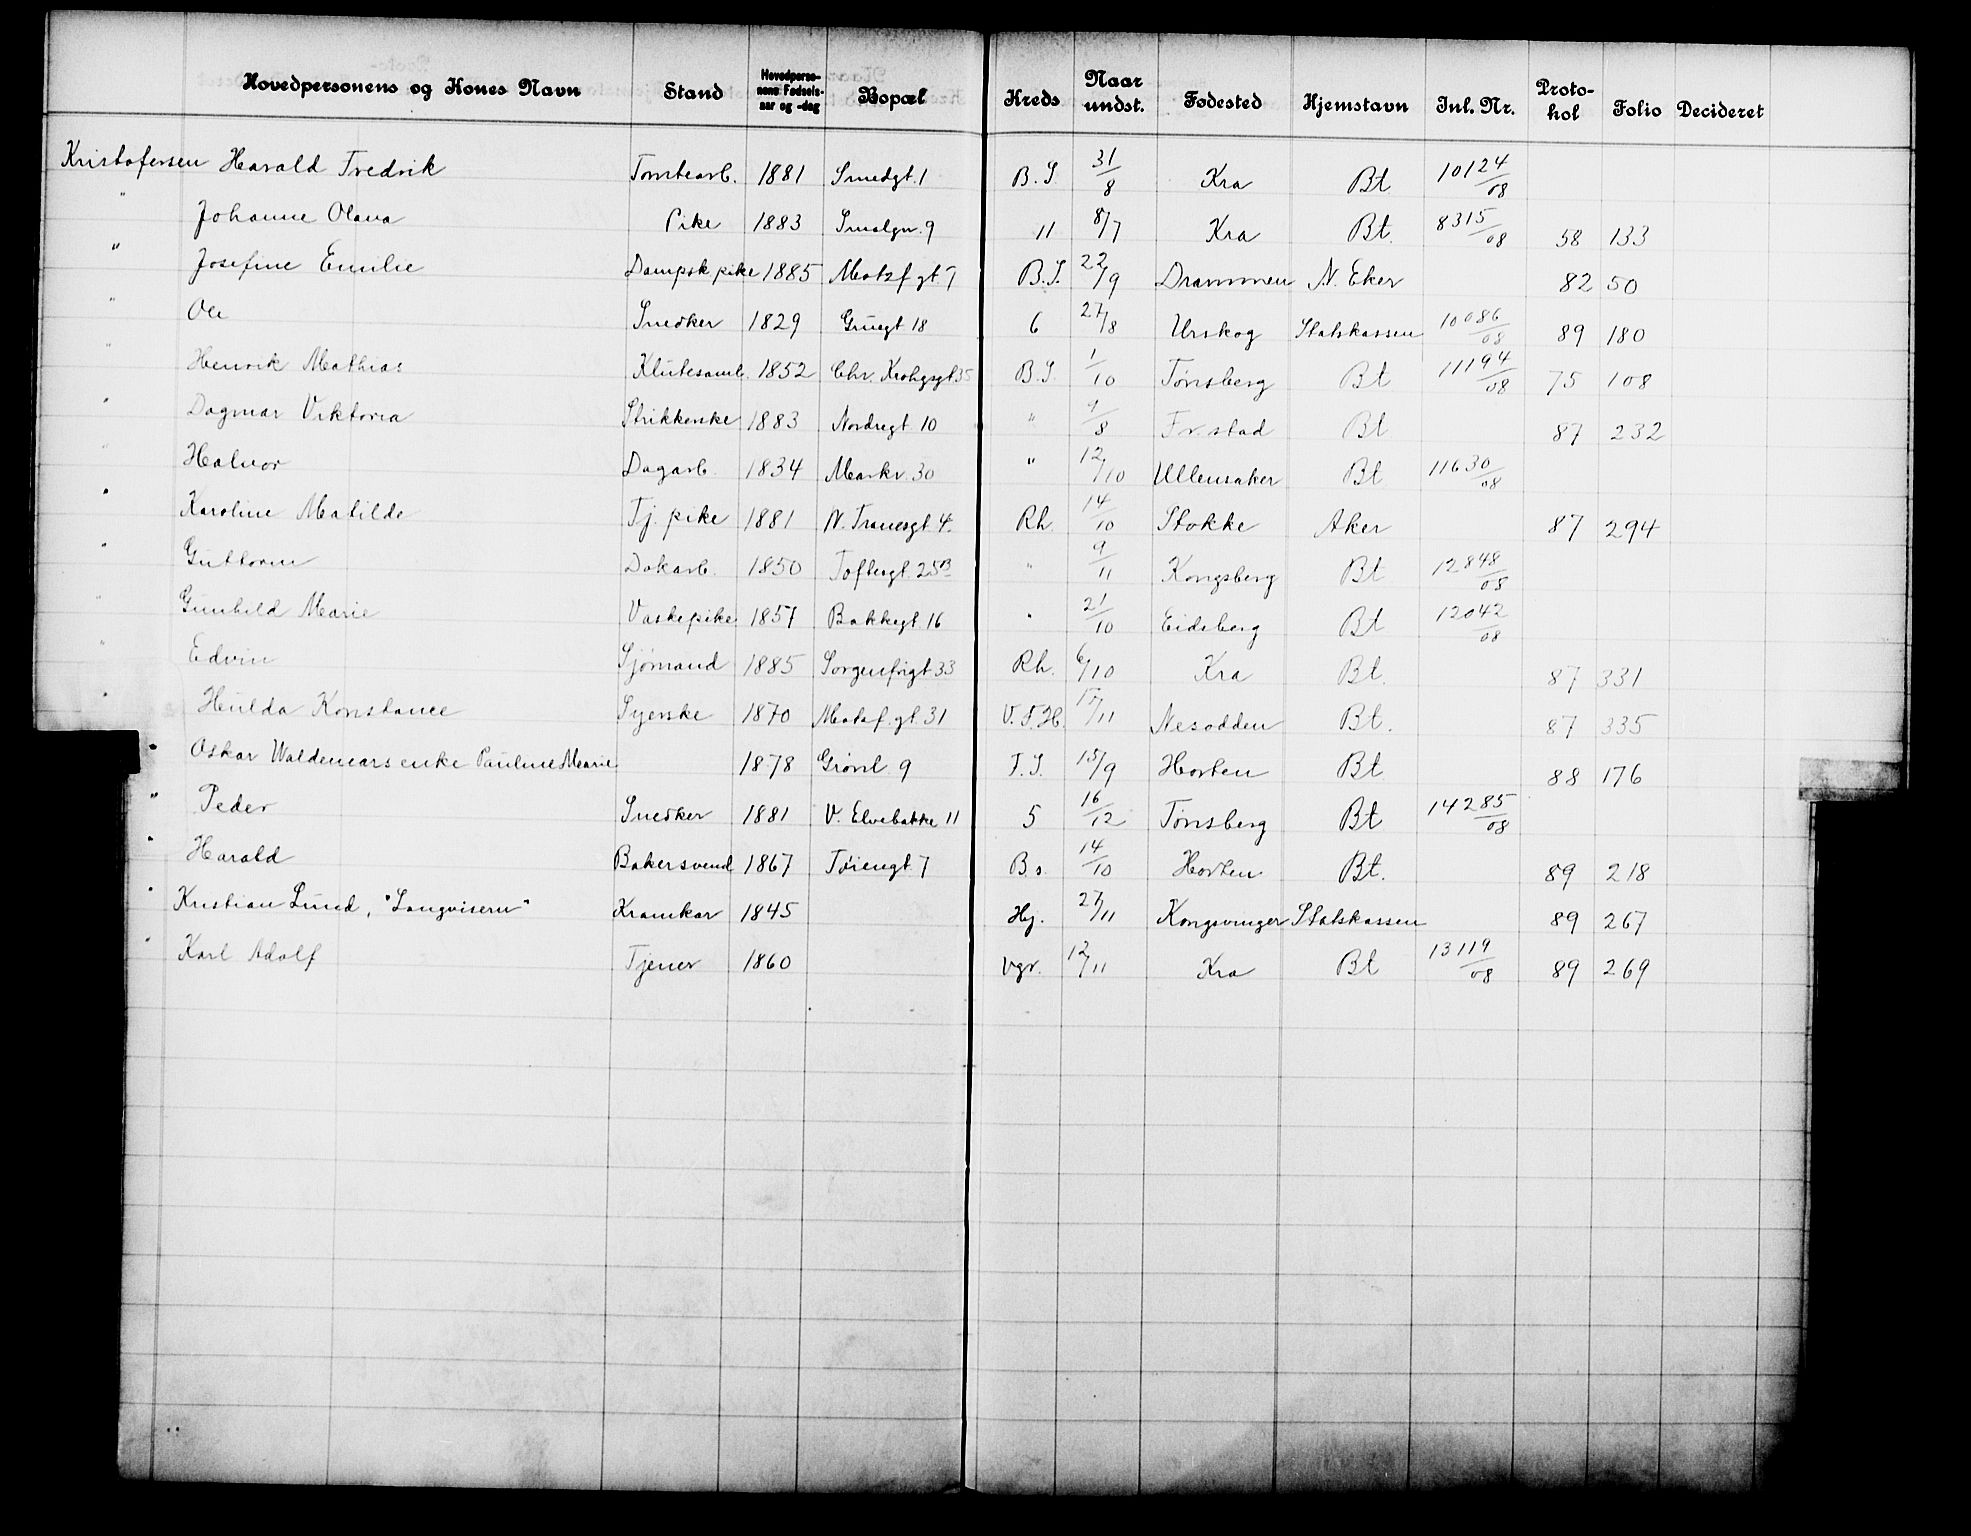 Hovedpersonens og Kones Navn Stand Hovedpersonens Fødselsaar og -dag Bopæl Kreds Naar undst. Fødested Hjemstavn Inl. Nr. Protokol Folio Decideret
Kristofersen Harald Fredrik Tomtearb. 1881 Smedgt. 1 B.S. 31/8 Kra Bt. 10124/08
" Johanne Olava Pike 1883 Smalgn. 9 11 8/7 Kra Bt. 8315/08 58 133
" Josefine Emilie Dampsk pike 1885 Motzf gt. 7 B.S. 22/9 Drammen N. Eker 82 50
" Ole Snedker 1829 Gruegt 18 6 27/8 Urskog Statskassen 10086/08 89 180
" Henrik Mathias Klutesaml. 1852 Chr. Krohgsgt. 35 B.S. 1/10 Tønsberg Bt 11194/08 75 108
" Dagmar Viktoria Strikkerske 1883 Nordregt. 10 " 9/8 Fr.stad Bt 87 232
" Halvor Dagarb. 1834 Markv. 30 " 12/10 Ullensaker Bt 11630/08
" Karoline Matilde Tj. pike 1881 N. Tranesgt. 4. Rh. 14/10 Stokke Aker 87 294
" Guttorm Dokarb. 1850 Toftesgt. 25B " 9/11 Kongsberg Bt 12848/08
" Gunhild Marie Vaskepike 1857 Bakkegt. 16 " 21/10 Eidsberg Bt 12042/08
" Edvin Sjømand 1885 Sorgenfrigt 33 Rh. 6/10 Kra Bt. 87 331
" Hulda Konstance Syerske 1870 Motzf. gt. 31 V.F.H. /11 Nesodden Bt. 87 335
" Oskar Waldemars enke Pauline Marie 1878 Grønl. 9 F.S. 15/9 Horten Bt 88 176
" Peder Snedker 1881 V. Elvebakke 11 5 16/12 Tønsberg Bt 14285/08
" Harald Bakersvend 1867 Tøiengt. 7 B.s. 14/10 Horten Bt. 89 218
" Kristian Lund, "Langviseren" Kramkar 1845 Hj. 27/11 Kongsvinger Statskassen 89 267
" Karl Adolf Tjener 1860 Vgr. 12/11 Kra Bt 13119/08 89 269